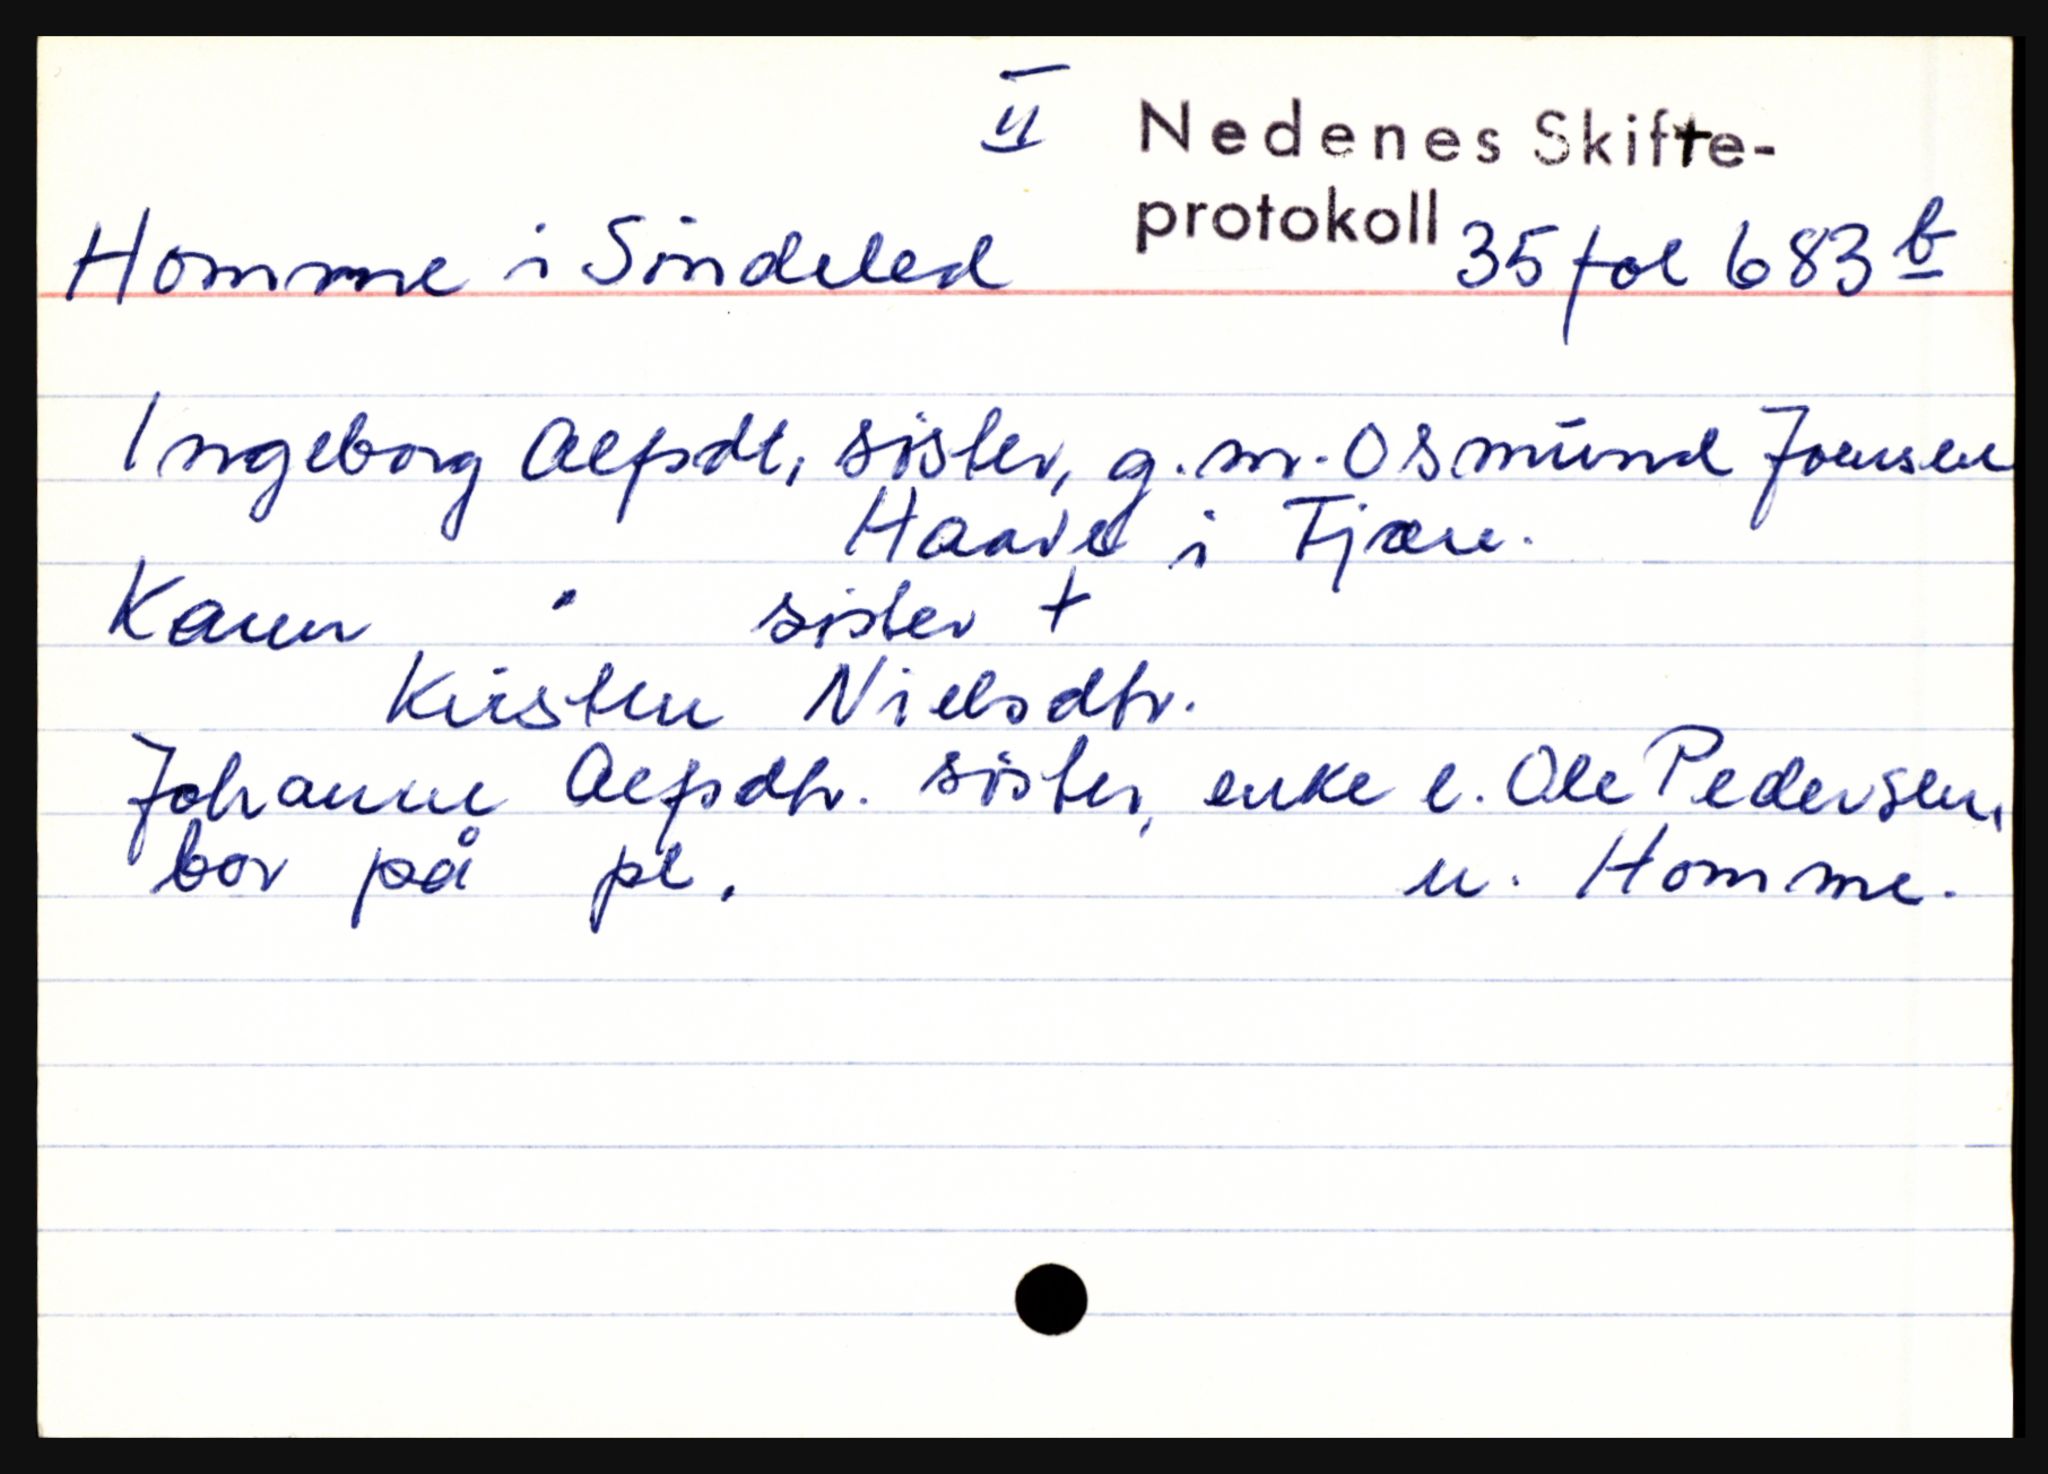 II Nedenes Skifte-
protokoll
Homme i Sindeled 35 fol 683 b
Ingeborg Alfsdt, sister, g.m. Osmund Joensen
Haave i Tjøre.
Karen " sister +
Kirsten Nielsdtr.
Johanne Alfsdtr. sister, enke e. Ole Pedersen,
bor på pl. u. Homme.